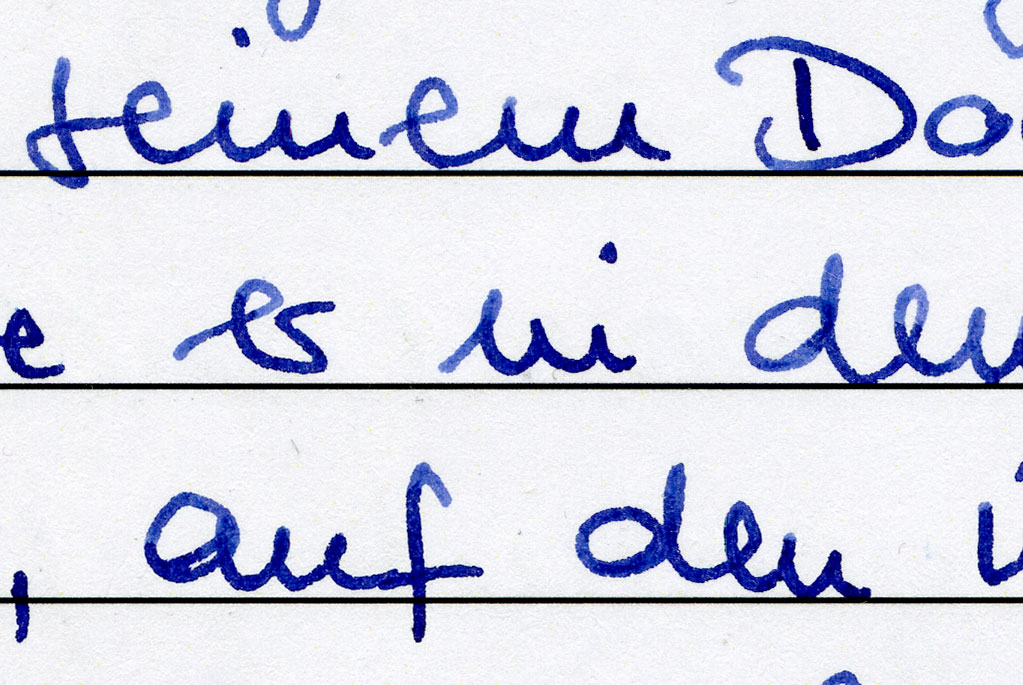 seinem Do
e es in den
, auf den